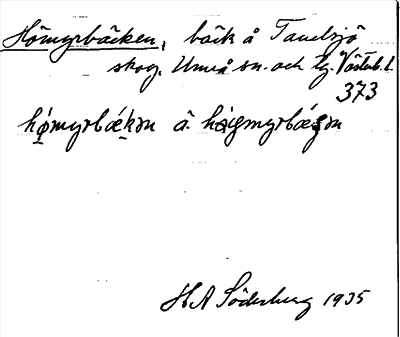 Hömyrbäcken, bäck å Tavelsjö
skog. Umeå sn. och tg. Västerb. l.
373
hǿmyrbǽkən å. högmyrbǽ
H A Söderberg 1935